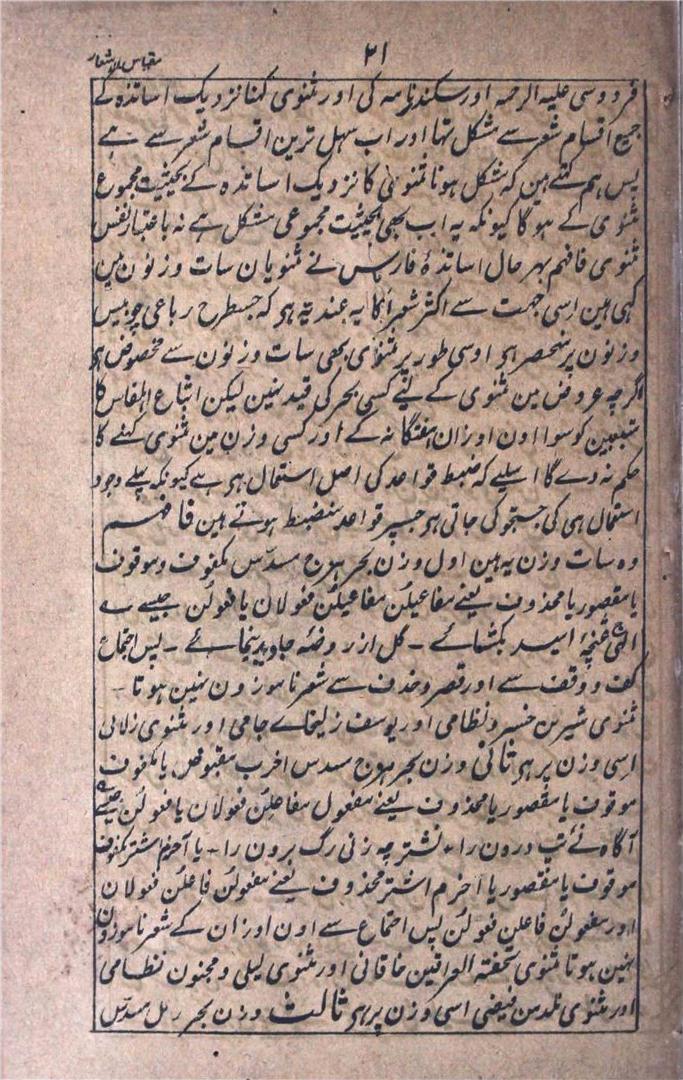 ۲۱
مقیاس الاشعار
فردوسی علیہ الرحمہ اور سکندرنامہ کی اور مثنوی کہنا نزدیک اساتذہ کے
جمیع اقسام شعر سے مشکل تہا اور اب سہل ترین اقسام شعر سے ہے
پس ہم کہتے ہین کہ مشکل ہونا مثنوی کا نزدیک اساتذہ کے بحیثیت مجموع
مثنوی کے ہوگا کیونکہ یہ اب بھی بحیثیت مجموعی مشکل ہے نہ باعتبار نفس
مثنوی فافہم بہر حال اساتذۂ فارس نے مثنویان سات وزنون مین
کہی ہین اسی جہت سے اکثر شعرا کا یہ عندیہ ہی کہ جسطرح رباعی چوبیس
وزنون پر منحصر ہی اوسی طور پر مثنوی بھی سات وزنون سے مخصوص ہی
اگرچہ عروض مین مثنوی کے لیے کسی بحر کی قید نہین لیکن اتباع
متتبعین کو سوا اون اوزان ہفتگانہ کے اور کسی وزن مین مثنوی کہنے کا
حکم ندے گا اسلیے کہ ضبط قواعد کی اصل استعمال ہی ہے کیونکہ پہلے وجود
استعمال ہی کی جستجو کی جاتی ہی جسپر قواعد منضبط ہوتے ہین فافہم
وہ سات وزن یہ ہین اول وزن بحر ہزج مسدس مکفوف و موقوف
یا مقصور یا محذوف یعنے مفاعیلن مفاعیلن فعولان یا فعولن جیسے ے
الٰہی غنچۂ امید بکشائے ۔ گل از روضۂ جاوید بنمائے ۔ پس اجتماع
کف و وقف سے اور قصر و حذف سے شعر ناموزون نہین ہوتا ۔
مثنوی شیرین خسرو نظامی اور یوسف زلیخاے جامی اور مثنوی زلالی
اسی وزن پر ہی ثانی وزن بحر ہزج مسدس اخرب مقبوض یا مکفوف
موقوف یا مقصور یا محذوف یعنے مفعول مفاعلن فعولان یا فعولن جیسے ے
آگاہ نئے تپ درون را ۔ نشتر چہ زنی رگ برون را ۔ یا آخرم اشتر مکفوف
موقوف یا مقصور یا اخرم اشتر محذوف یعنے مفعولن فاعلن فعولان
اور مفعولن فاعلن فعولن پس اجتماع سے اون اوزان کے شعر ناموزون
نہین ہوتا مثنوی تحفتہ العراقین خاقانی اور مثنوی لیلی و مجنون نظامی
اور مثنوی نلدمن فیضی اسی وزن پر ہی ثالث وزن بحر رمل مسدس